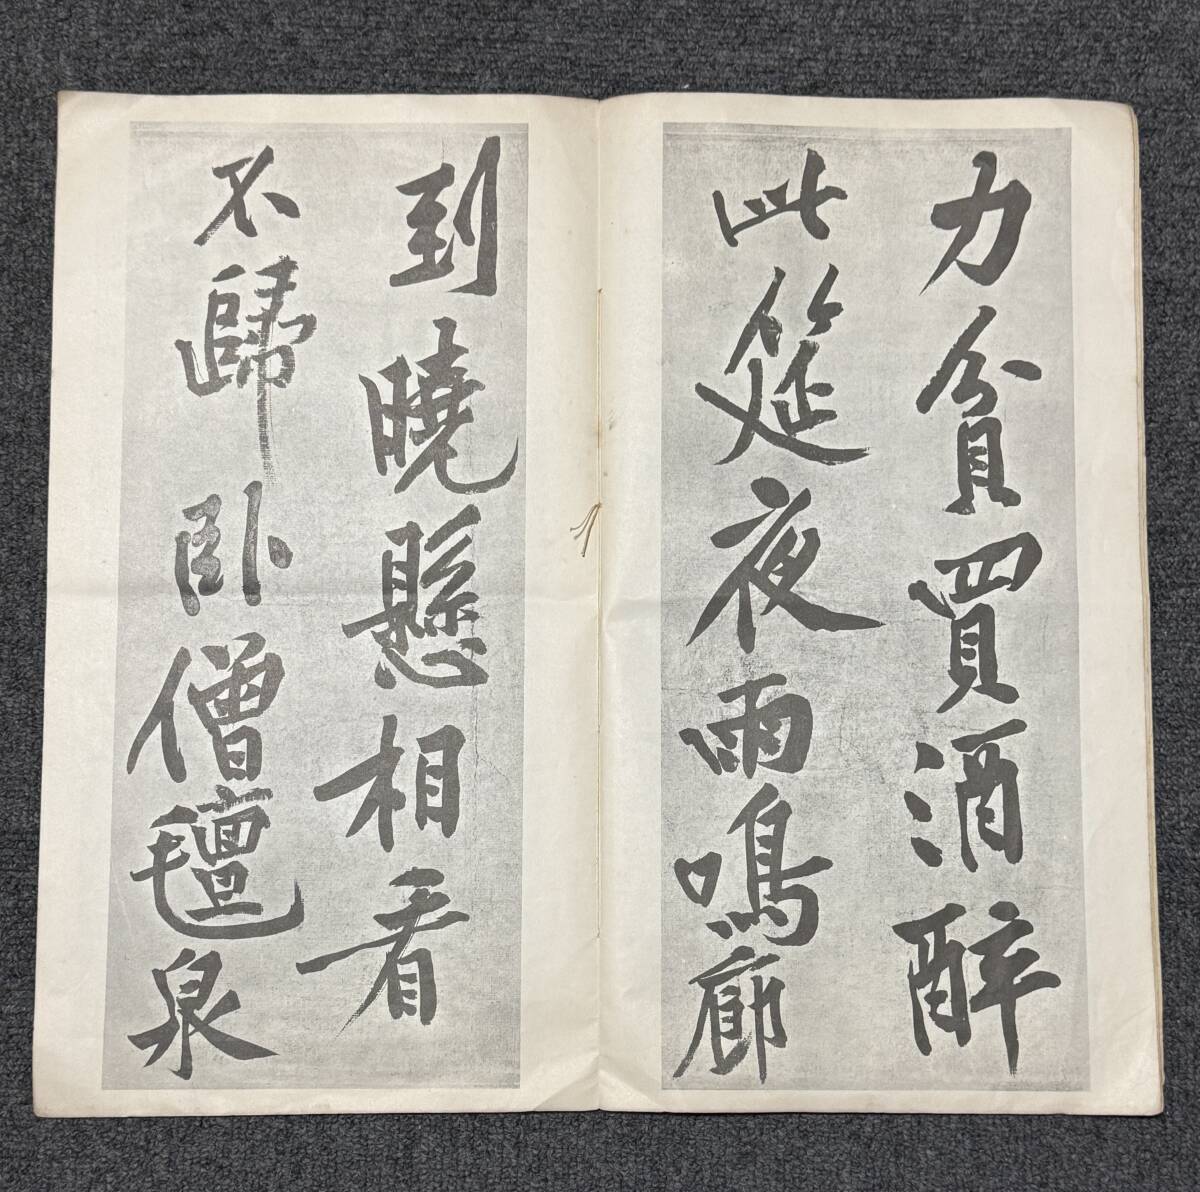 力貧買酒醉
此筵夜雨鳴廊
到曉懸相看
不歸卧僧氊泉